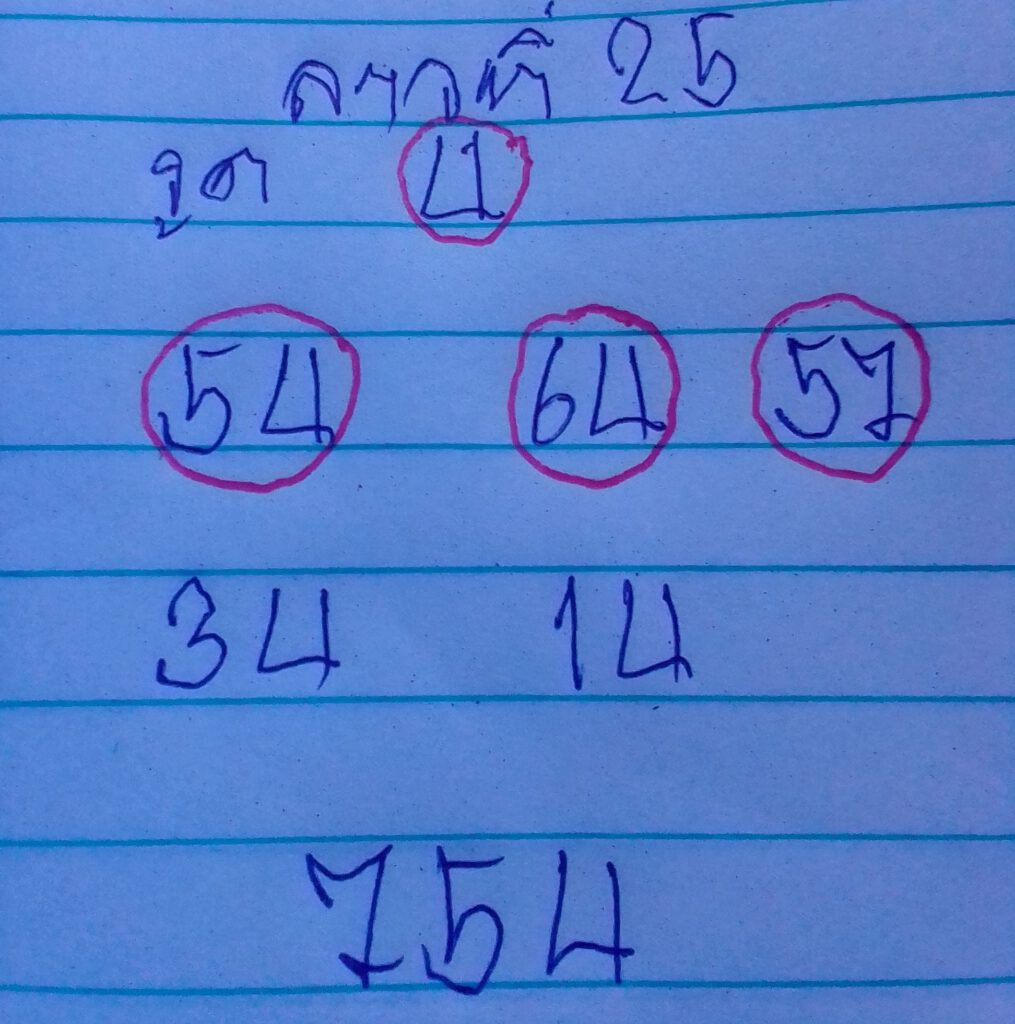 ลาวที่ 25
รูด 4
54 64 57
34 14
754